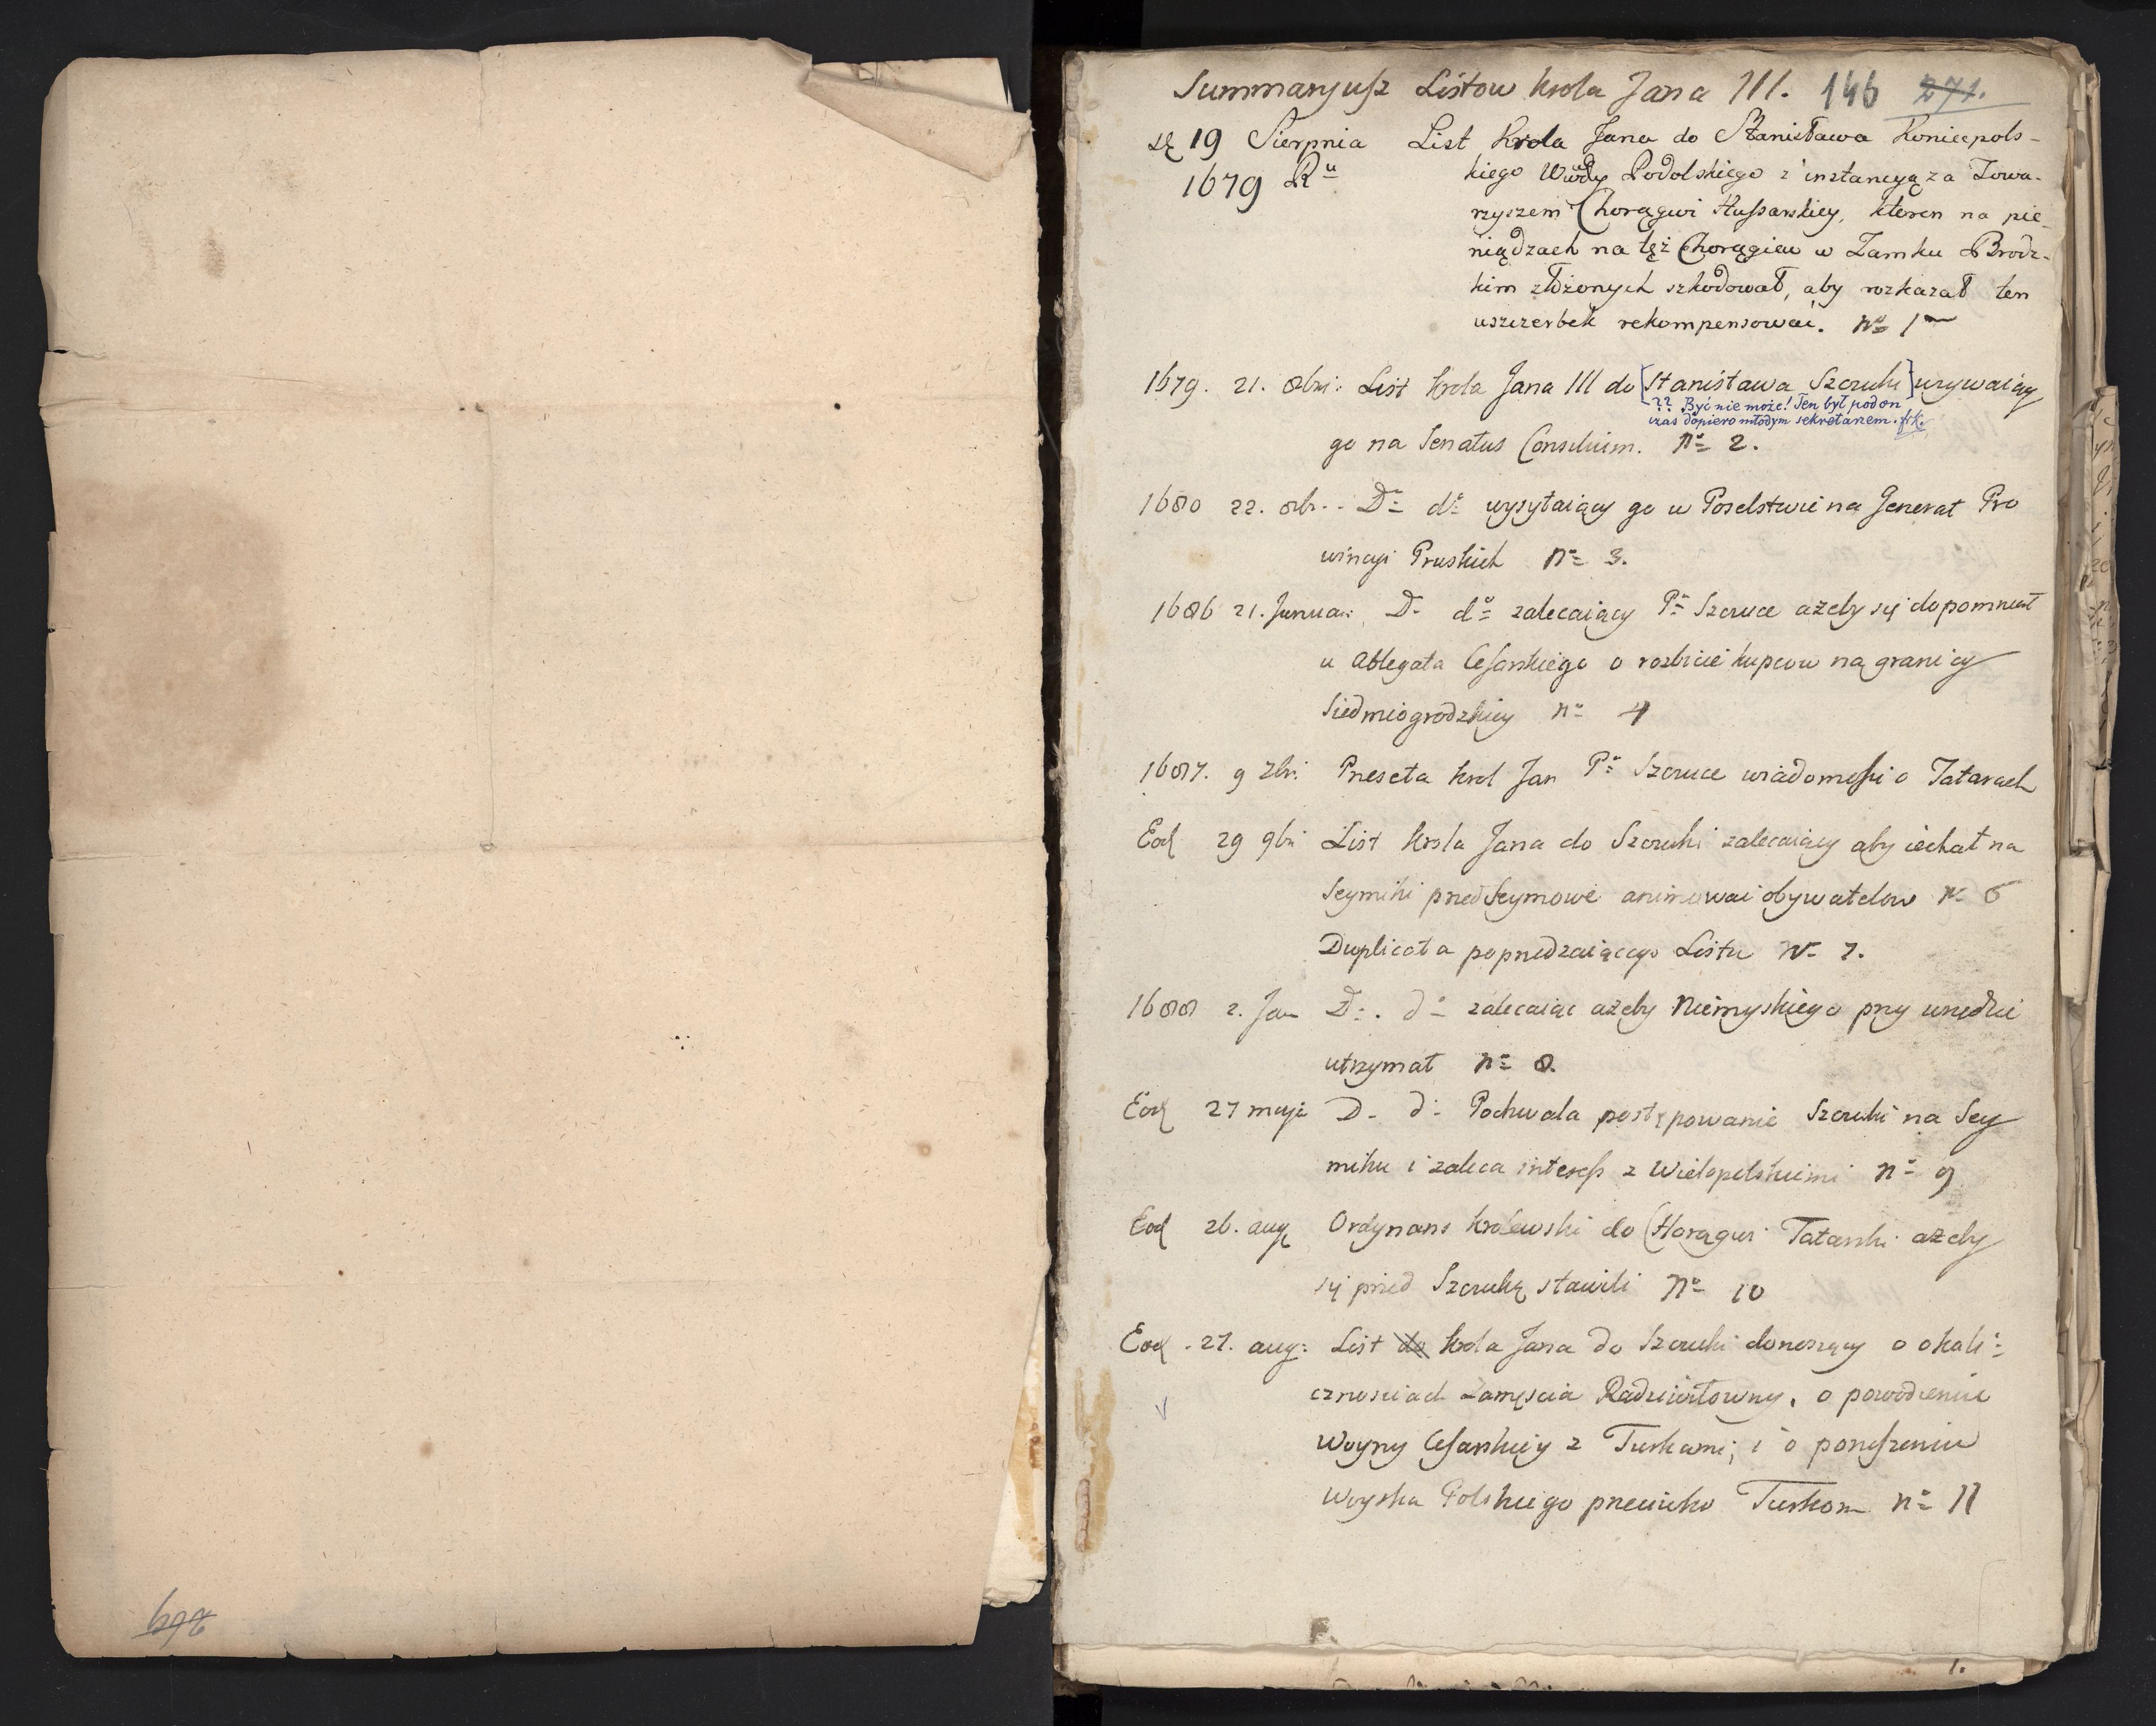 269
Summaryusz Listow Krola Jana III. 146 271.
19 Sierpnia List Krola Jana do Stanisława Koniecpols-
1679 Ru kiego Wdy Podolskiego z instancyą za Towa-
rzyszem Chorągwi Hussarskiey, kteren na pie
niądzach na tęż Chorągiew w Zamku Brodz-
kim złożonych szkodował, aby rozkazał ten
uszczerbek rekompensować. No 1
1679. 21. 8bri: List Krola Jana III do [Stanisława Szczuki] wzywaiący
?? Być nie może! Ten był podon
czas dopiero młodym sekretarzem.
go na Senatus Consilium. No 2.
1680 22. 8br. Do do wysyłaiący go w Poselstwie na Generał Pro
wincyi Pruskich No 3.
1686 21. Januar. D. do zalecaiący Po Szczuce ażeby się dopomniał
u Ablegata Cesarskiego o rozbicie kupcow na granicy
Siedmiogrodzkiey No 4
1687. 9 7br. Przeseła Krol Jan Po Szczuce wiadomości o Tatarach
Eod 29 9bri List Krola Jana do Szczuki zalecaiący aby iechał na
Seymiki przedSeymowe animować obywatelow No 6
Duplicata poprzedzaiącego Listu No 7.
1688 2. Jan Do. do zalecaiąc ażeby Niemyskiego przy urzędzie
utrzymał No 8.
Eod 27 maja D. d. Pochwala postępowanie Szczuki na Sey
miku i zaleca interess z Wielopolskiemi No 9
Eod 26. aug Ordynans Krolewski do Chorągwi Tatarski ażeby
się przed Szczuką stawili No 10
Eod. 27. aug: List do Krola Jana do Szczuki donoszący o okoli-
cznosciach Zamęscia Radziwiłowny, o powodzeniu
Woyny Cesarskiey z Turkami; i o poruszeniu
Woyska Polskiego przeciwko Turkom No 11
1.